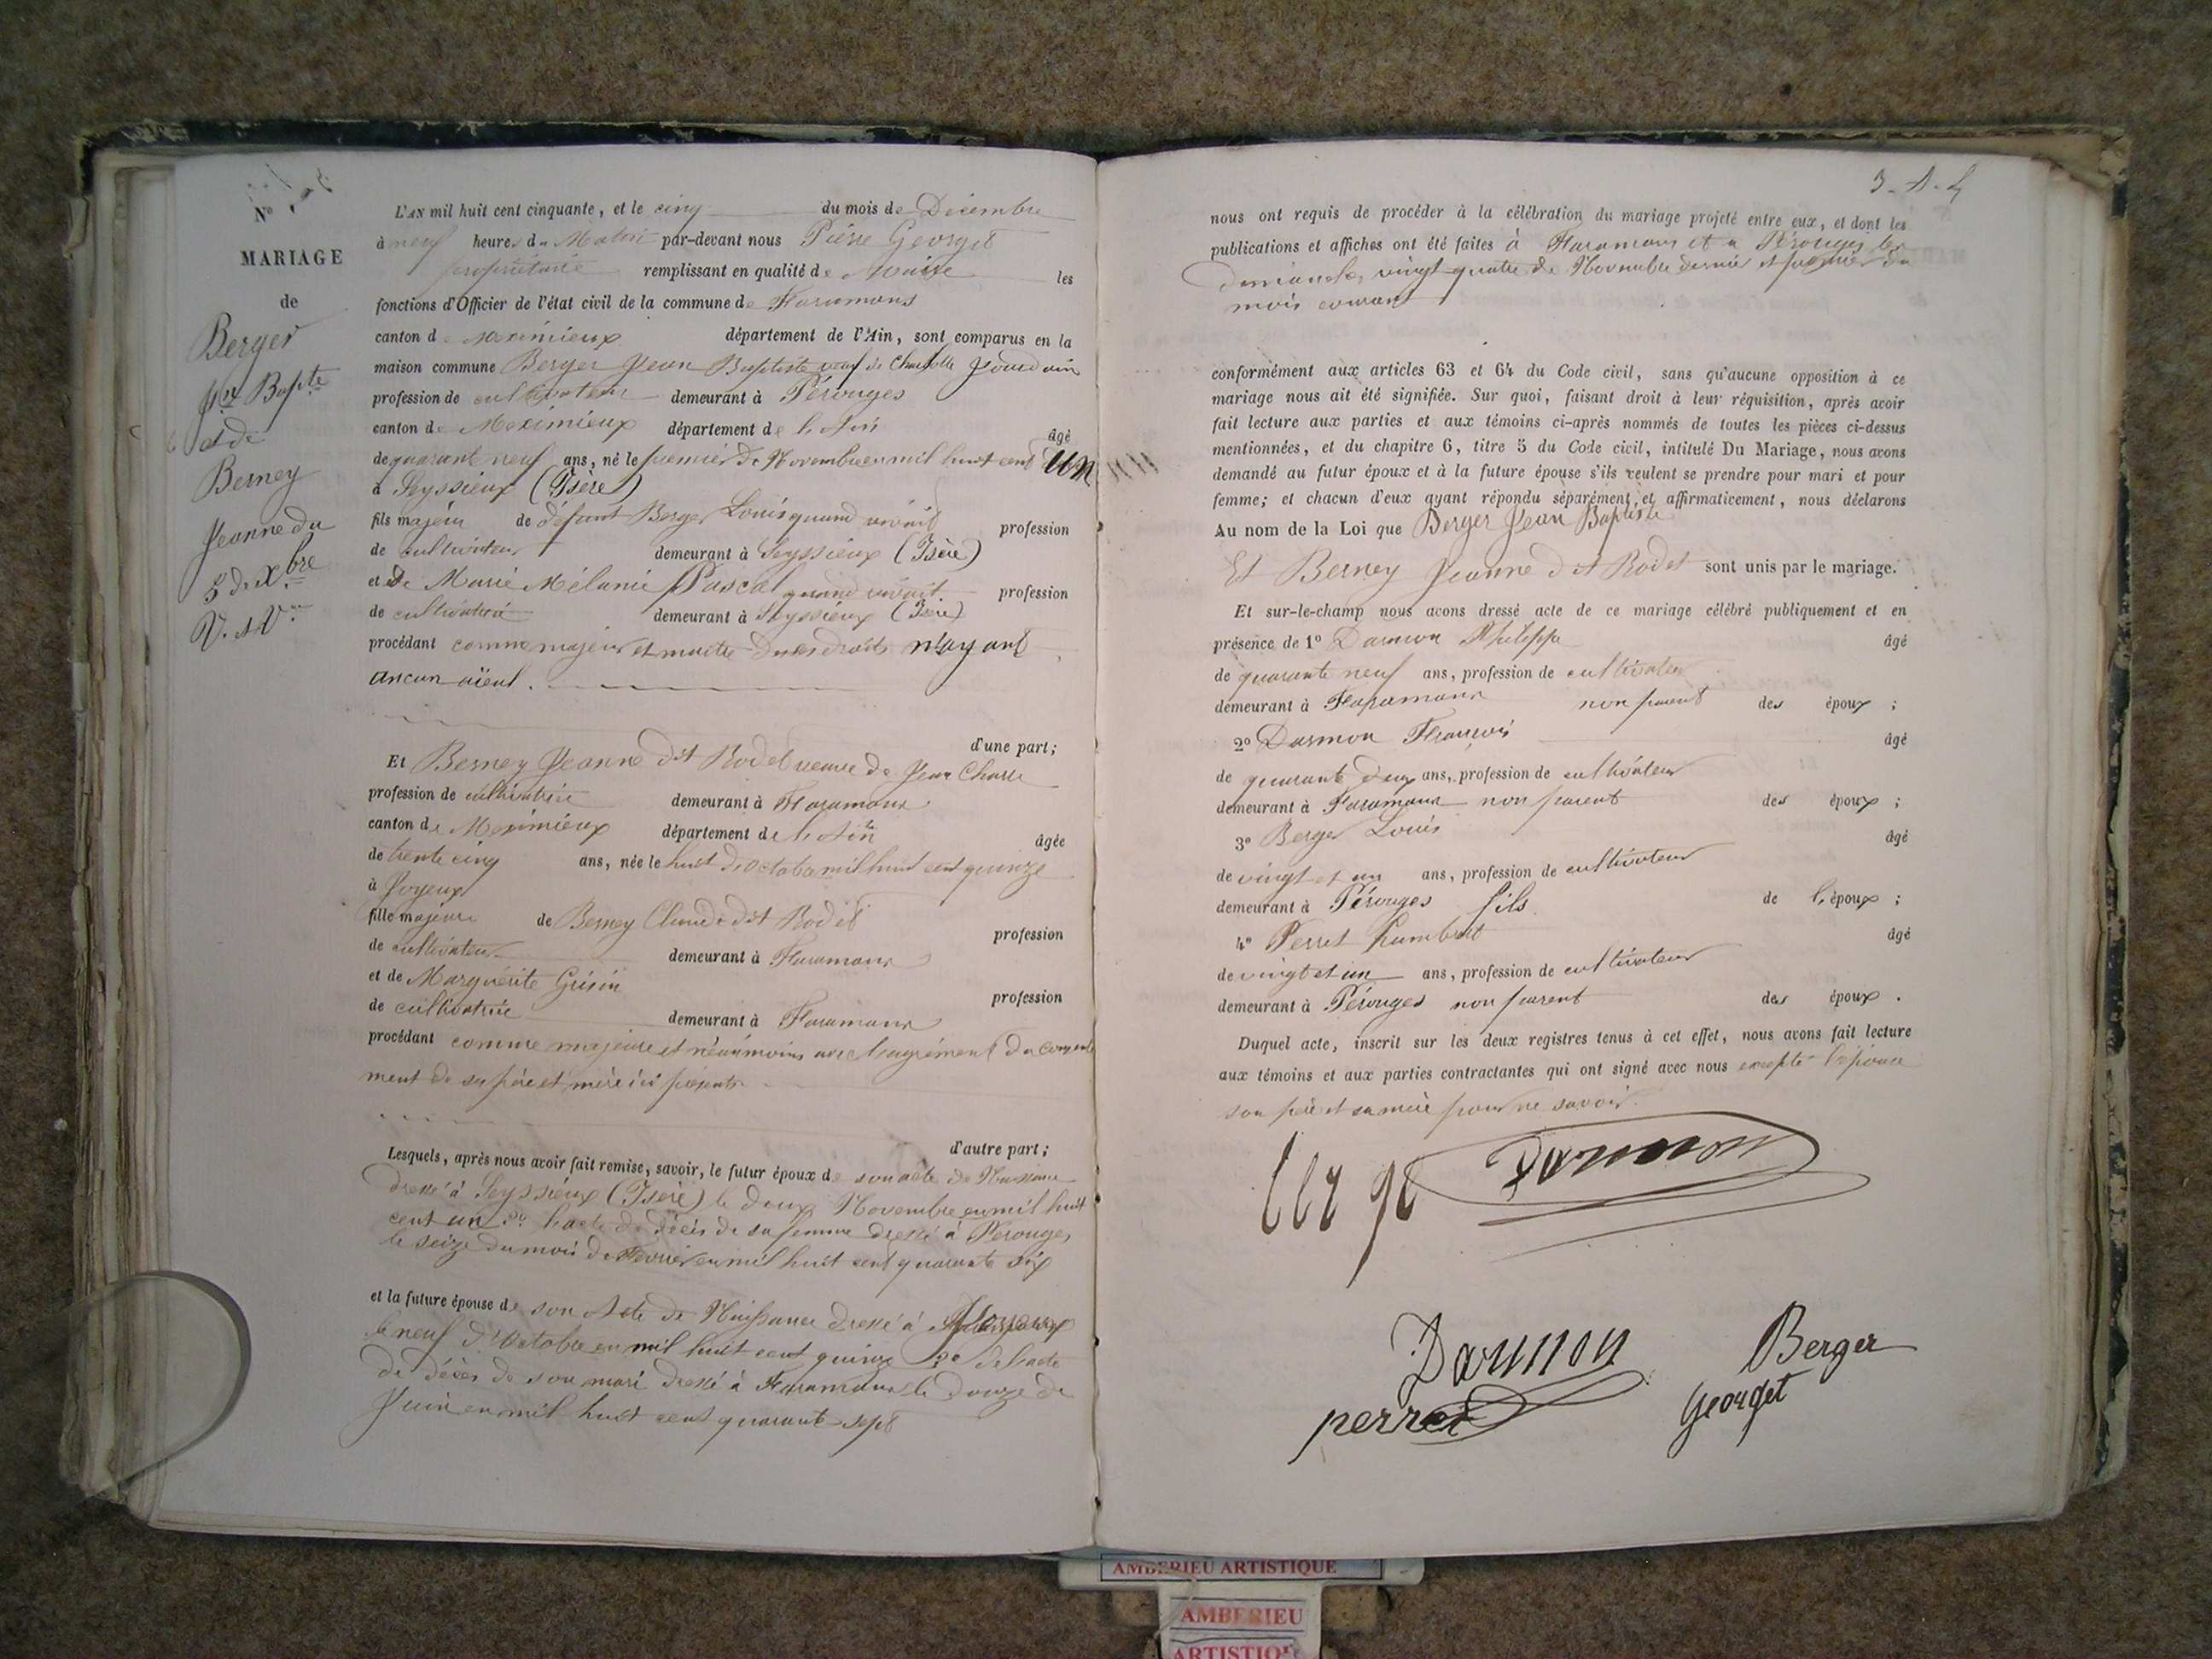 N°
MARIAGE
de
Berger
Jn Bapte
et de
Berney
Jeanne du
5 de Xbre
V. et Ve
L'AN mil huit cent cinquante, et le cinq du mois de Décembre
à neuf heures du Matin par-devant nous Pierre Georget
propriétaire remplissant en qualité de Maire les
fonctions d'Officier de l'état civil de la commune de Faramans
canton de Meximieux département de l'Ain, sont comparus en la
maison commune Berger Jean Baptiste veuf de Charlotte Jourdain
profession de cultivateur demeurant à Pérouges
canton de Meximieux département de l'Ain âgé
de quarante neuf ans, né le premier de Novembre en mil huit cent un
à Seyssieux (Isère)
fils majeur de défunt Berger Louis quand vivait profession
de cultivateur demeurant à Seyssieux (Isère)
et de Marie Mélanie Pascal quand vivait profession
de cultivatrice demeurant à Seyssieux (Isère)
procédant comme majeur et maitre de ses droits n'ayant
aucun aïeul.
d'une part;
Et Berney Jeanne dit Rodet veuve de Jean Charle
profession de cultivatrice demeurant à Faramans
canton de Meximieux département de l'Ain âgée
de trente cinq ans, née le huit d'octobre mil huit cent quinze
à Joyeux
fille majeure de Berney Claude dit Rodet profession
de cultivateur demeurant à Faramans
et de Marguerite Grisin profession
de cultivatrice demeurant à Faramans
procédant comme majeure et néanmoins avec l'agrément du consente
ment de ses père et mère ici présents
d'autre part;
Lesquels, après nous avoir fait remise, savoir, le futur époux de son acte de Naissance
dressé à Seyssieux (Isère) le deux Novembre en mil huit
cent un 2° l'acte de décès de sa femme dressé à Pérouges
le seize du mois de Février en mil huit cent quarante six
et la future épouse de son Acte de Naissance dressé à Joyeux
le neuf d'Octobre en mil huit cent quinze 2° de l'acte
de décès de son mari dressé à Faramans le douze de
Juin en mil huit cent quarante sept
nous ont requis de procéder à la célébration du mariage projeté entre eux, et dont les
publications et affiches ont été faites à Faramans et à Pérouges les
dimanches vingt quatre de Novembre dernier et premier du
mois courant
conformément aux articles 63 et 64 du Code civil, sans qu'aucune opposition à ce
mariage nous ait été signifiée. Sur quoi, faisant droit à leur réquisition, après avoir
fait lecture aux parties et aux témoins ci-après nommés de toutes les pièces ci-dessus
mentionnées, et du chapitre 6, titre 5 du Code civil, intitulé Du Mariage, nous avons
demandé au futur époux et à la future épouse s'ils veulent se prendre pour mari et pour
femme; et chacun d'eux ayant répondu séparément et affirmativement, nous déclarons
Au nom de la Loi que Berger Jean Baptiste
Et Berney Jeanne dit Rodet sont unis par le mariage.
Et sur-le-champ nous avons dressé acte de ce mariage célébré publiquement et en
présence de 1° Darmon Philippe âgé
de quarante neuf ans, profession de cultivateur
demeurant à Faramans non parent des époux ;
2° Darmon François âgé
de quarante deux ans, profession de cultivateur
demeurant à Faramans non parent des époux ;
3° Berger Louis âgé
de vingt et un ans, profession de cultivateur
demeurant à Pérouges fils de l'époux ;
4° Perret Humbert âgé
de vingt et un ans, profession de cultivateur
demeurant à Pérouges non parent des époux .
Duquel acte, inscrit sur les deux registres tenus à cet effet, nous avons fait lecture
aux témoins et aux parties contractantes qui ont signé avec nous excepté l'épouse
son père et sa mère pour ne savoir.
Darmon
Darmon Berger
perret Georget
AMBERIEU ARTISTIQUE
AMBERIEU
ARTISTIQUE